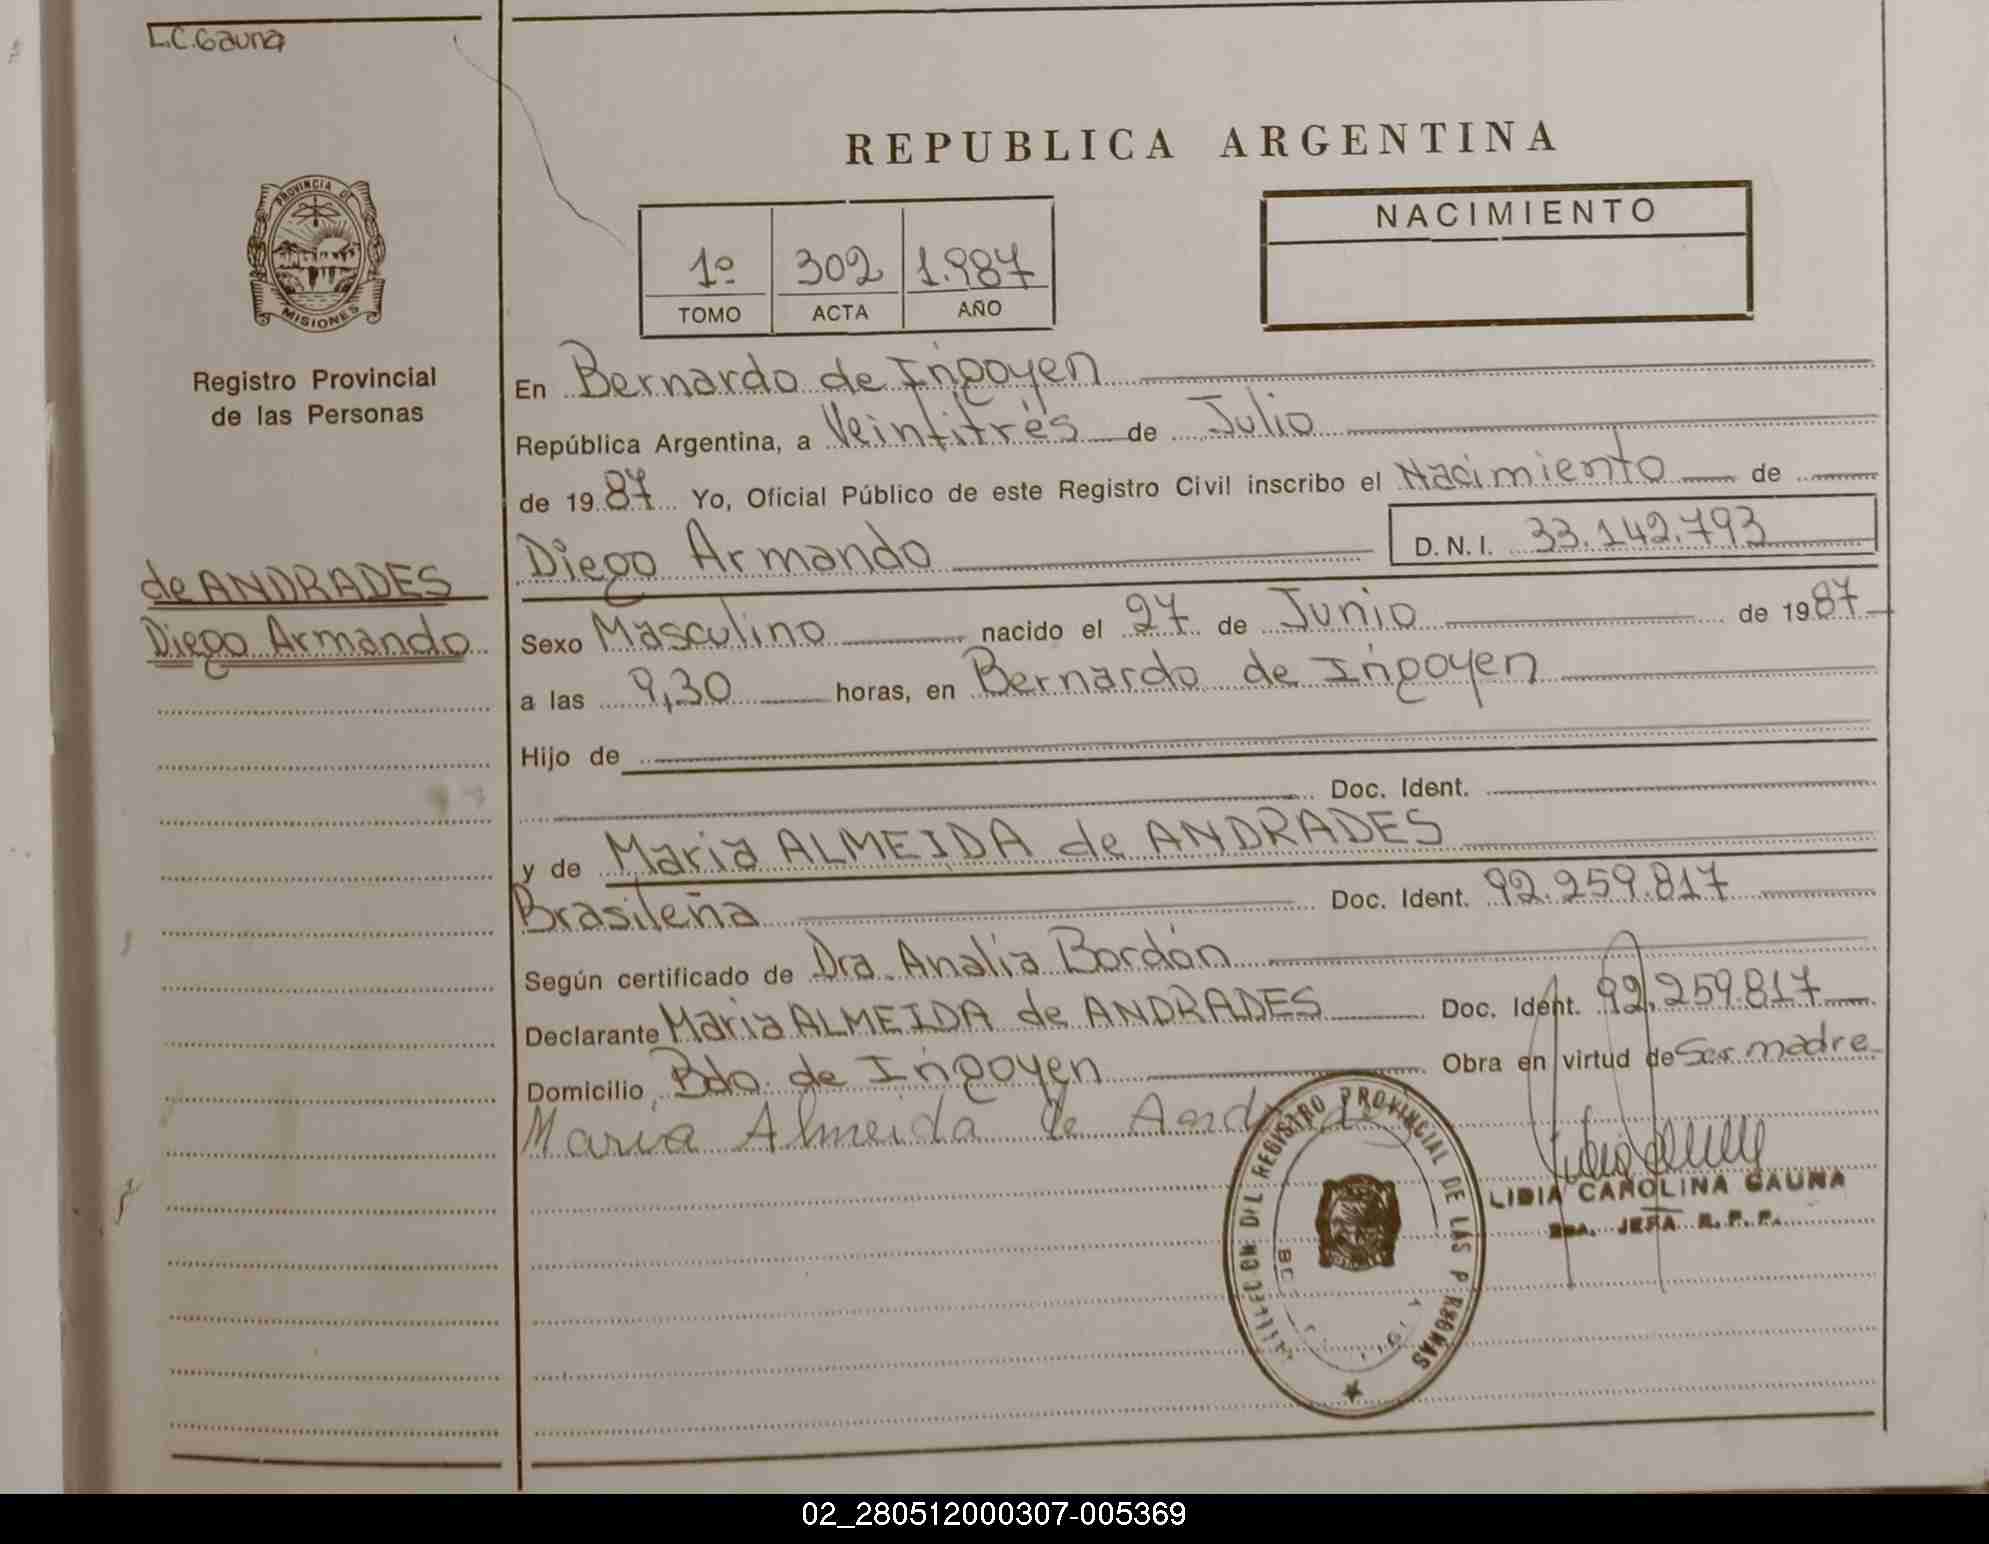 L.C. Gauna
REPUBLICA ARGENTINA
PROVINCIA DE
MISIONES
Registro Provincial
de las Personas
1º 302 1.987
TOMO ACTA AÑO
NACIMIENTO
En Bernardo de Irigoyen
República Argentina, a Veintitrés de Julio
de 1987 Yo, Oficial Público de este Registro Civil inscribo el Nacimiento de
Diego Armando D.N.I. 33.142.793
de ANDRADES
Diego Armando
Sexo Masculino nacido el 27 de Junio de 1987
a las 9,30 horas, en Bernardo de Irigoyen
Hijo de
Doc. Ident.
y de Maria ALMEIDA de ANDRADES
Brasileña Doc. Ident. 92.259.817
Según certificado de Dra. Analía Bordón
Declarante Maria ALMEIDA de ANDRADES Doc. Ident. 92.259.817
Domicilio Bdo. de Irigoyen Obra en virtud de Ser madre
Maria Almeida de
DEL REGISTRO PROVINCIAL DE LAS PERSONAS
LIDIA CAROLINA GAUNA
JEFA R. P. P.
02_280512000307-005369